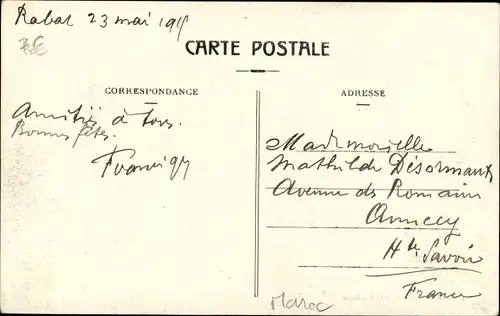 Rabat 23 mai 191
7€
CARTE POSTALE
CORRESPONDANCE
ADRESSE
Amitiés à tous.
Bonnes fêtes.
Mademoiselle
Mathilde Désormaux
Avenue des Romains
Annecy
Hte Savoie
France
Maroc